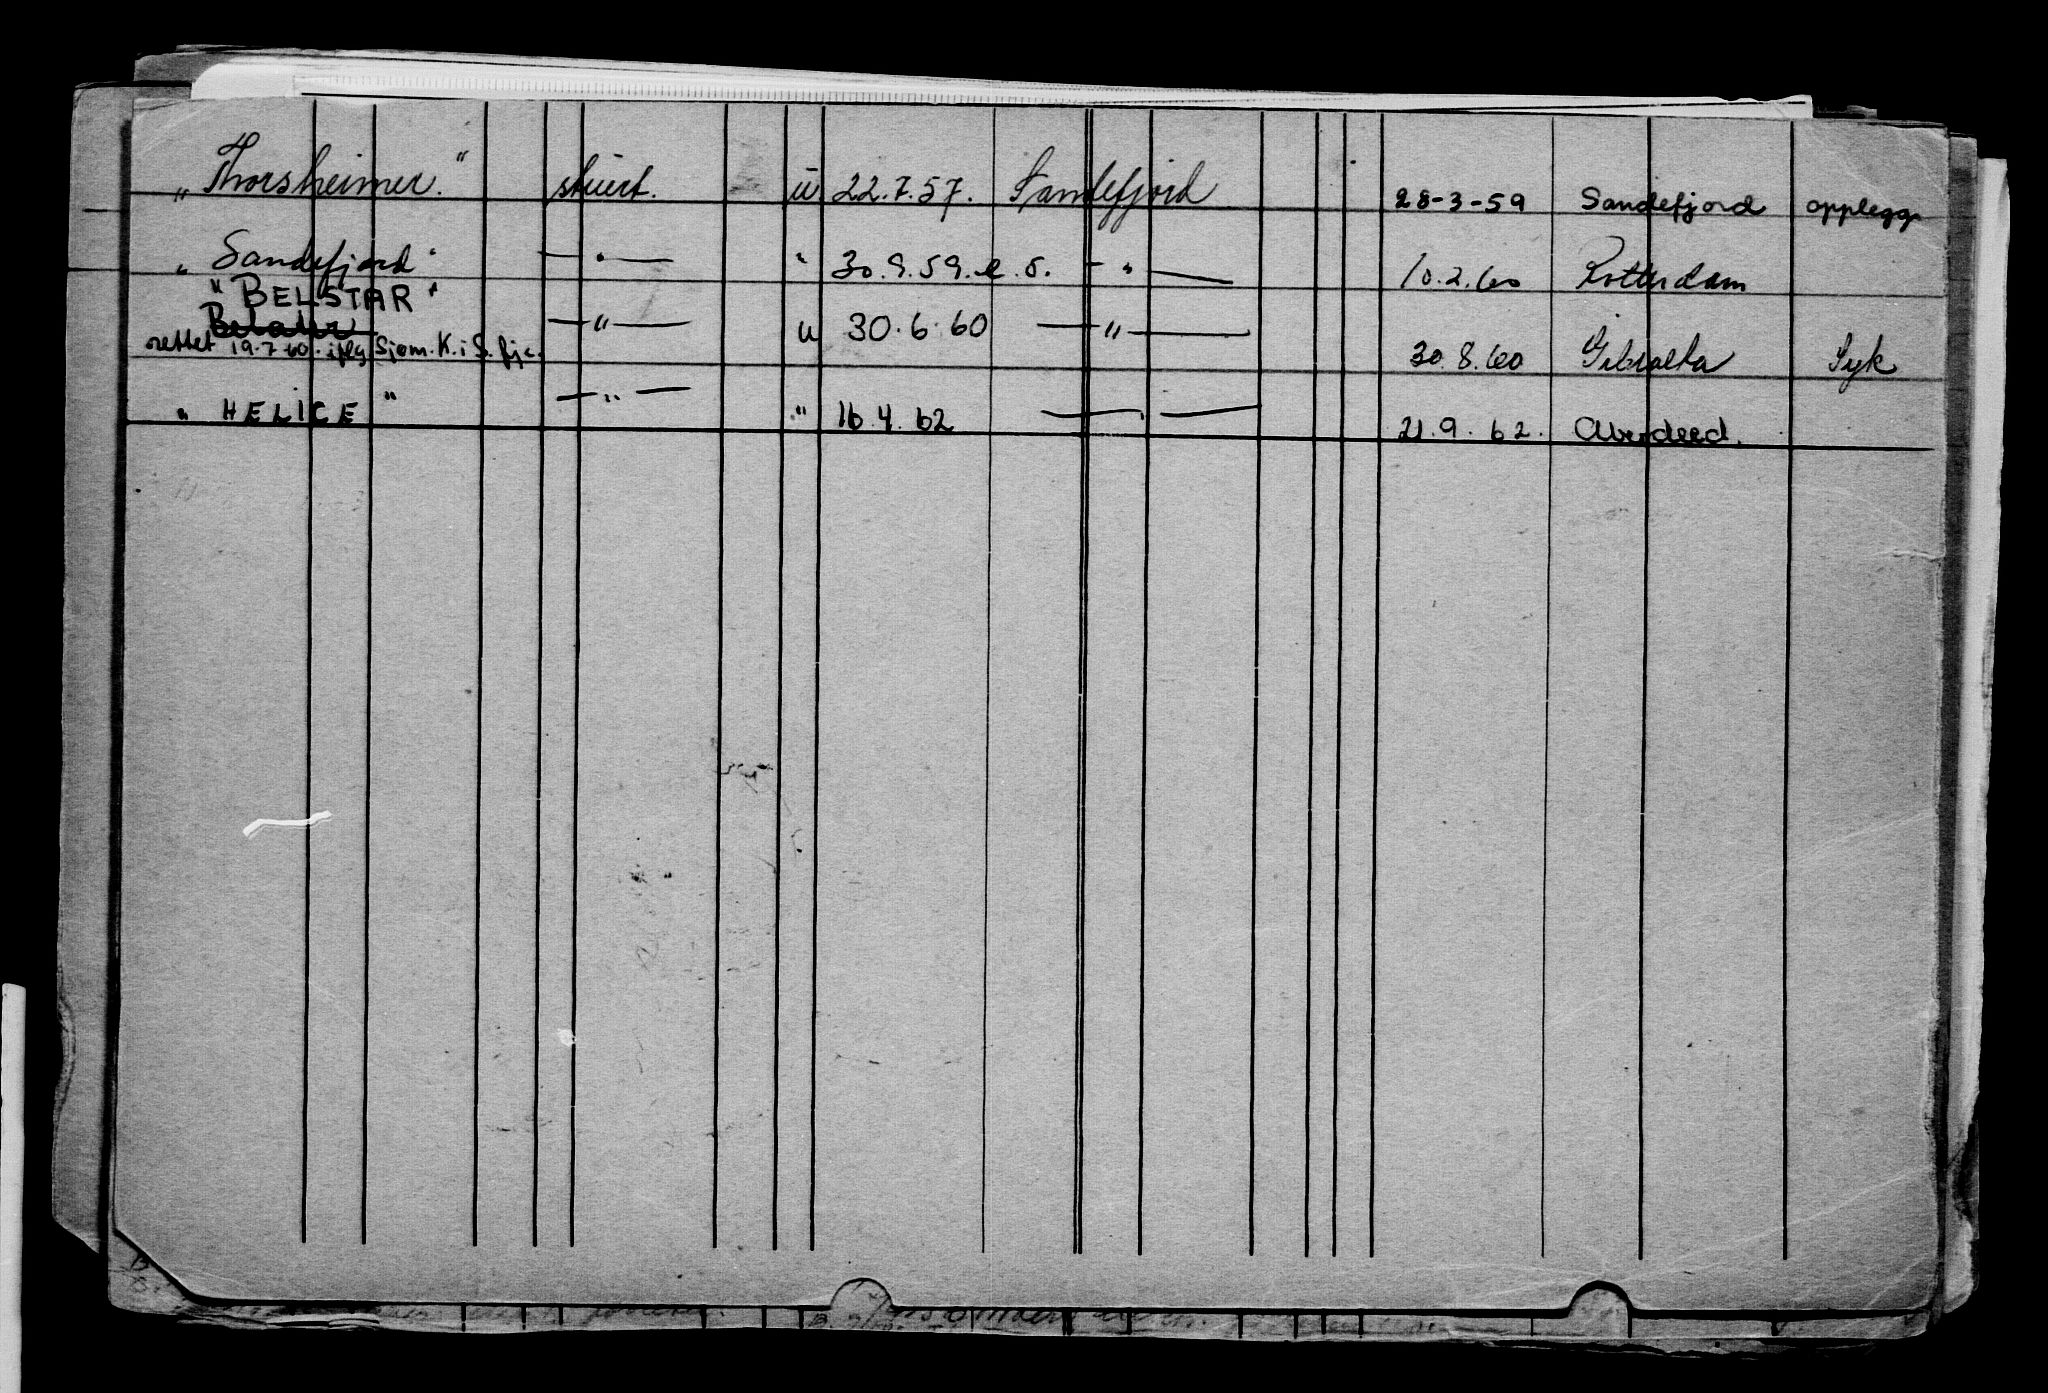 „ Thorsheimer." stuert. u 22.7.57. Sandefjord 28-3-59 Sandefjord opplegg
„ Sandefjord" — " — " 30.9.59. e. o. — " — 10.2.60 Rotterdam
"BELSTAR" — " — u 30.6.60 — " — 30.8.60 Gibralta Syk
rettet 19.7.60. iflg Sjøm. K. i S. fj.
„ HELICE " — " — " 16.4.62 — 21.9.62. Aberdeed.